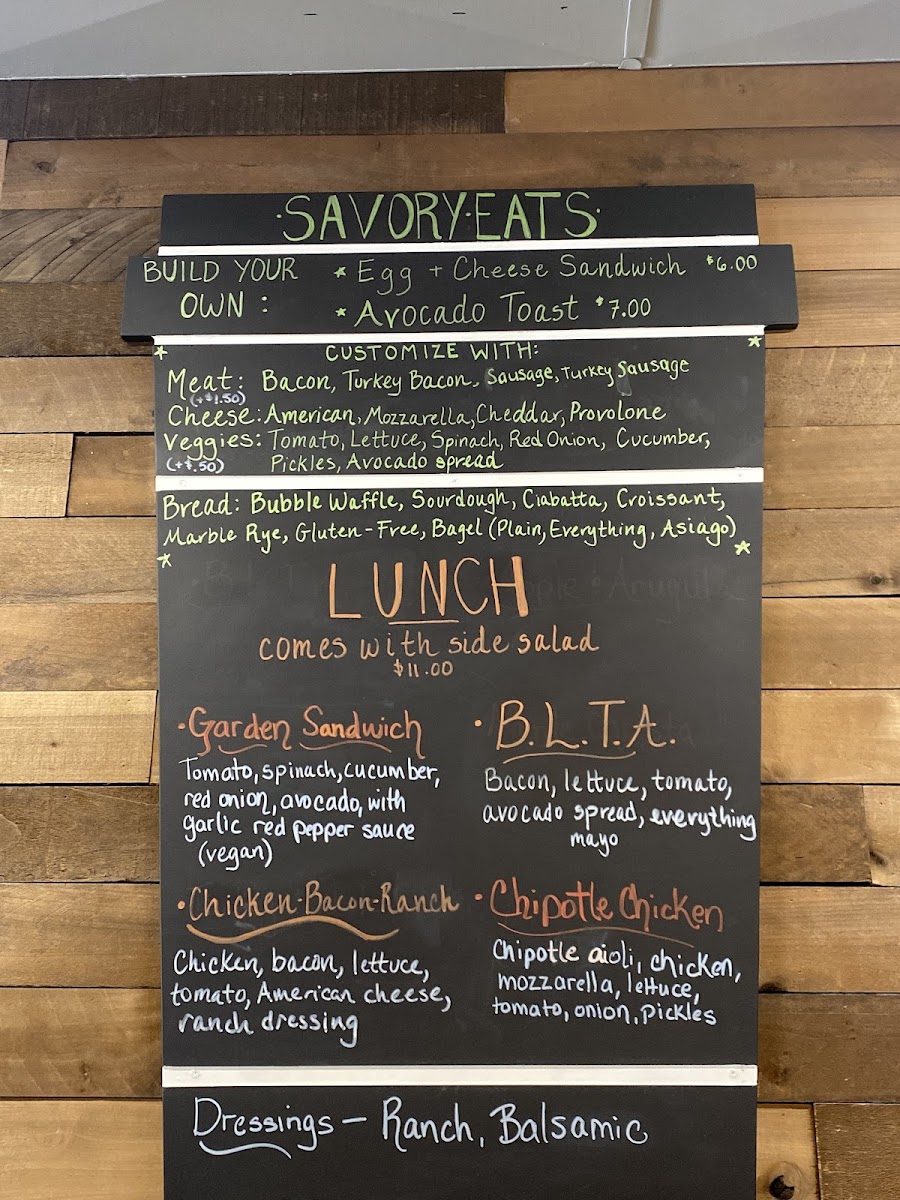 ·SAVORY·EATS·
BUILD YOUR OWN :
* Egg + Cheese Sandwich $6.00
* Avocado Toast $7.00
CUSTOMIZE WITH:
Meat: Bacon, Turkey Bacon, Sausage, Turkey Sausage
(+$1.50)
Cheese: American, Mozzarella, Cheddar, Provolone
Veggies: Tomato, Lettuce, Spinach, Red Onion, Cucumber,
(+$.50) Pickles, Avocado spread
Bread: Bubble Waffle, Sourdough, Ciabatta, Croissant,
Marble Rye, Gluten-Free, Bagel (Plain, Everything, Asiago)
LUNCH
comes with side salad
$11.00
· Garden Sandwich
Tomato, spinach, cucumber,
red onion, avocado, with
garlic red pepper sauce
(vegan)
· B.L.T.A.
Bacon, lettuce, tomato,
avocado spread, everything
mayo
· Chicken-Bacon-Ranch
Chicken, bacon, lettuce,
tomato, American cheese,
ranch dressing
· Chipotle Chicken
Chipotle aioli, chicken,
mozzarella, lettuce,
tomato, onion, pickles
Dressings — Ranch, Balsamic